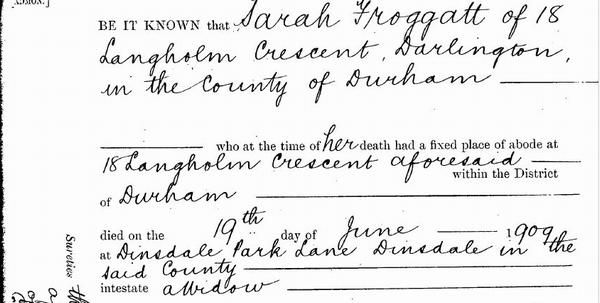 BE IT KNOWN that Sarah Froggatt of 18
Langholm Crescent, Darlington,
in the County of Durham
who at the time of her death had a fixed place of abode at
18 Langholm Crescent aforesaid
within the District
of Durham
died on the 19th day of June 1909
at Dinsdale Park Lane Dinsdale in the
said County
intestate a Widow
Sureties